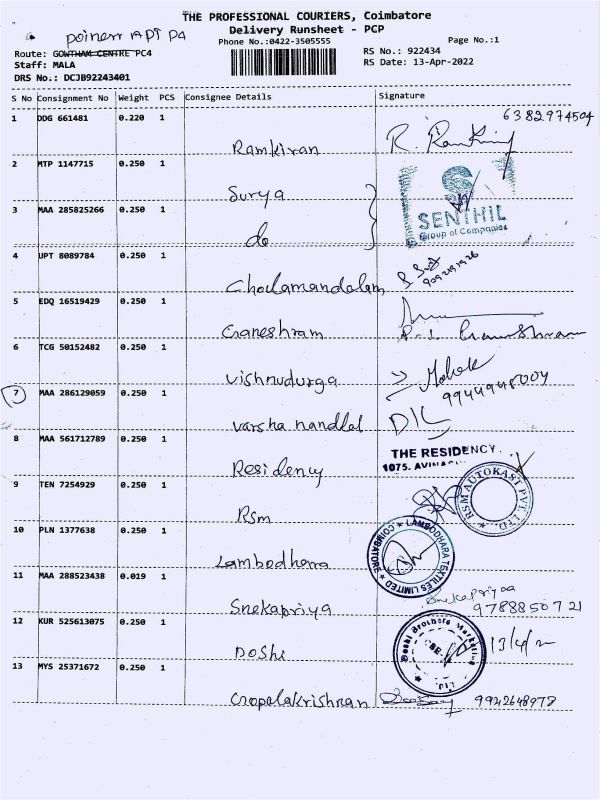 THE PROFESSIONAL COURIERS, Coimbatore
Delivery Runsheet - PCP
Phone No.:0422-3505555
Page No.:1
Route: GOWTHAM CENTRE PC4
RS No.: 922434
Staff: MALA
RS Date: 13-Apr-2022
DRS No.: DCJB92243401
S No Consignment No Weight PCS Consignee Details Signature
1 DDG 661481 0.220 1 6382974504
Ramkiran
2 MTP 1147715 0.250 1
Surya
SENTHIL
Group of Companies
3 MAA 285825266 0.250 1
do
4 UPT 8089784 0.250 1
Cholamandalam
5 EDQ 16519429 0.250 1
Ganeshram
6 TCG 50152482 0.250 1
Vishnudurga
9944948004
7 MAA 286129059 0.250 1
Varsha nandlal
8 MAA 561712789 0.250 1
THE RESIDENCY
1075, AVINA
Residency
9 TEN 7254929 0.250 1
RSM AUTOKAST PVT. LTD.
Rsm
10 PLN 1377638 0.250 1
LAMBODHARA TEXTILES LIMITED COIMBATORE
Lambodhara
11 MAA 288523438 0.019 1
Snekapriya
9788850721
12 KUR 525613075 0.250 1
Doshi Brothers Marketing
Ltd.
13/4/22
Doshi
13 MYS 25371672 0.250 1
Gopalakrishnan 9942648978